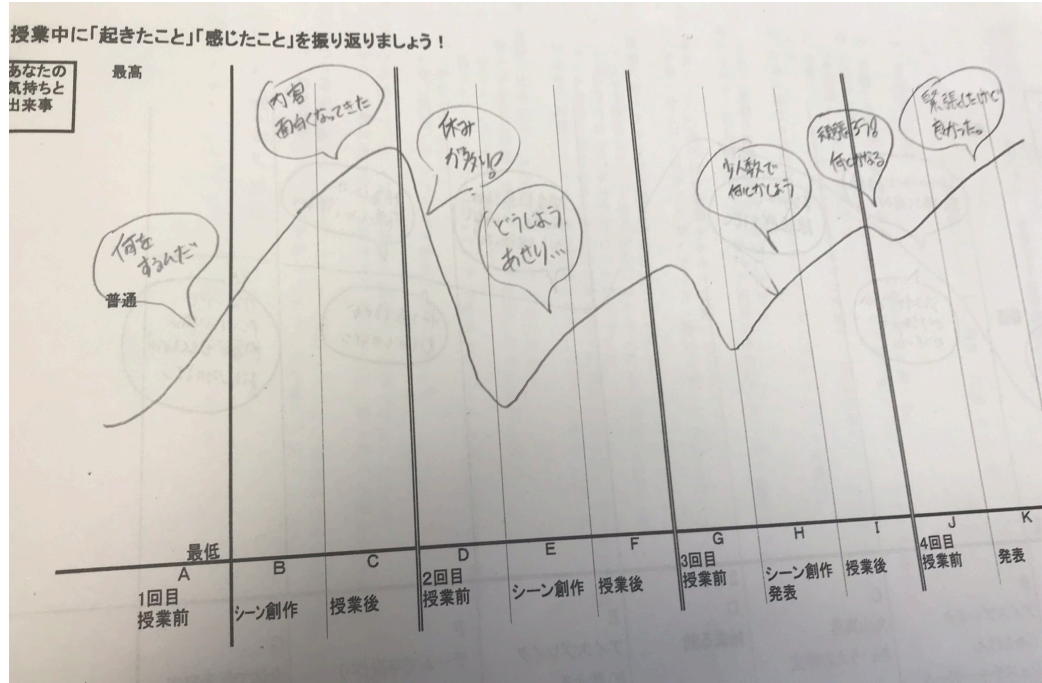 授業中に「起きたこと」「感じたこと」を振り返りましょう！
あなたの
気持ちと
出来事
最高
普通
最低
何を
するんだ
内容
面白くなってきた
休み
が多い!
どうしよう
あせり…
少人数で
何とかしよう
何とかなる
緊張したけど
良かった。
A
B
C
D
E
F
G
H
I
J
K
1回目
授業前
シーン創作
授業後
2回目
授業前
シーン創作
授業後
3回目
授業前
シーン創作
発表
授業後
4回目
授業前
発表